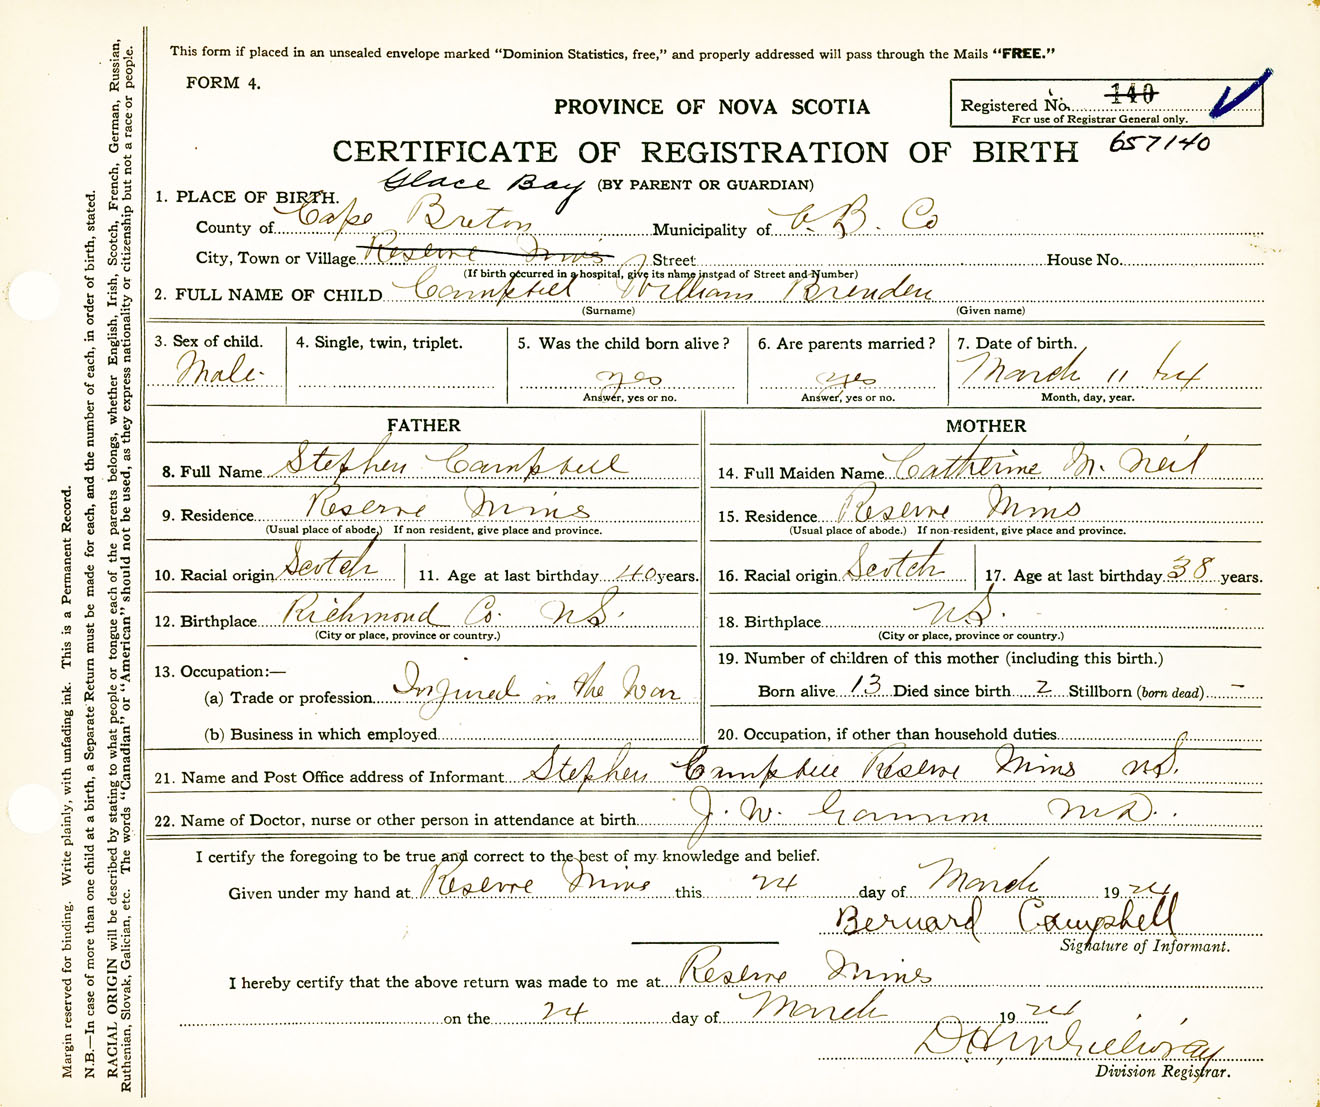 This form if placed in an unsealed envelope marked “Dominion Statistics, free,” and properly addressed will pass through the Mails “FREE.”
FORM 4.
PROVINCE OF NOVA SCOTIA
Registered No. 140
For use of Registrar General only.
657140
CERTIFICATE OF REGISTRATION OF BIRTH
Glace Bay (BY PARENT OR GUARDIAN)
1. PLACE OF BIRTH.
County of Cape Breton Municipality of C. B. Co
City, Town or Village Reserve Mines Street House No.
(If birth occurred in a hospital, give its name instead of Street and Number)
2. FULL NAME OF CHILD Campbell William Brenden
(Surname) (Given name)
3. Sex of child. 4. Single, twin, triplet. 5. Was the child born alive? 6. Are parents married? 7. Date of birth.
Male yes yes March 11 24
Answer, yes or no. Answer, yes or no. Month, day, year.
FATHER MOTHER
8. Full Name Stephen Campbell 14. Full Maiden Name Catherine Mc Neil
9. Residence Reserve Mines 15. Residence Reserve Mines
(Usual place of abode.) If non resident, give place and province. (Usual place of abode.) If non-resident, give place and province.
10. Racial origin Scotch 11. Age at last birthday 40 years. 16. Racial origin Scotch 17. Age at last birthday 38 years.
12. Birthplace Richmond Co. N.S. 18. Birthplace N.S.
(City or place, province or country.) (City or place, province or country.)
13. Occupation:— 19. Number of children of this mother (including this birth.)
(a) Trade or profession Injured in the War Born alive 13 Died since birth 2 Stillborn (born dead) -
(b) Business in which employed 20. Occupation, if other than household duties
21. Name and Post Office address of Informant Stephen Campbell Reserve Mines N.S.
22. Name of Doctor, nurse or other person in attendance at birth J. W. M.D.
I certify the foregoing to be true and correct to the best of my knowledge and belief.
Given under my hand at Reserve Mines this 24 day of March 1924
Bernard Campbell
Signature of Informant.
I hereby certify that the above return was made to me at Reserve Mines
on the 24 day of March 1924
Division Registrar.
Margin reserved for binding. Write plainly, with unfading ink. This is a Permanent Record.
N.B.—In case of more than one child at a birth, a Separate Return must be made for each, and the number of each, in order of birth, stated.
RACIAL ORIGIN will be described by stating to what people or tongue each of the parents belongs, whether English, Irish, Scotch, French, German, Russian,
Ruthenian, Slovak, Galician, etc. The words “Canadian” or “American” should not be used, as they express nationality or citizenship but not a race or people.